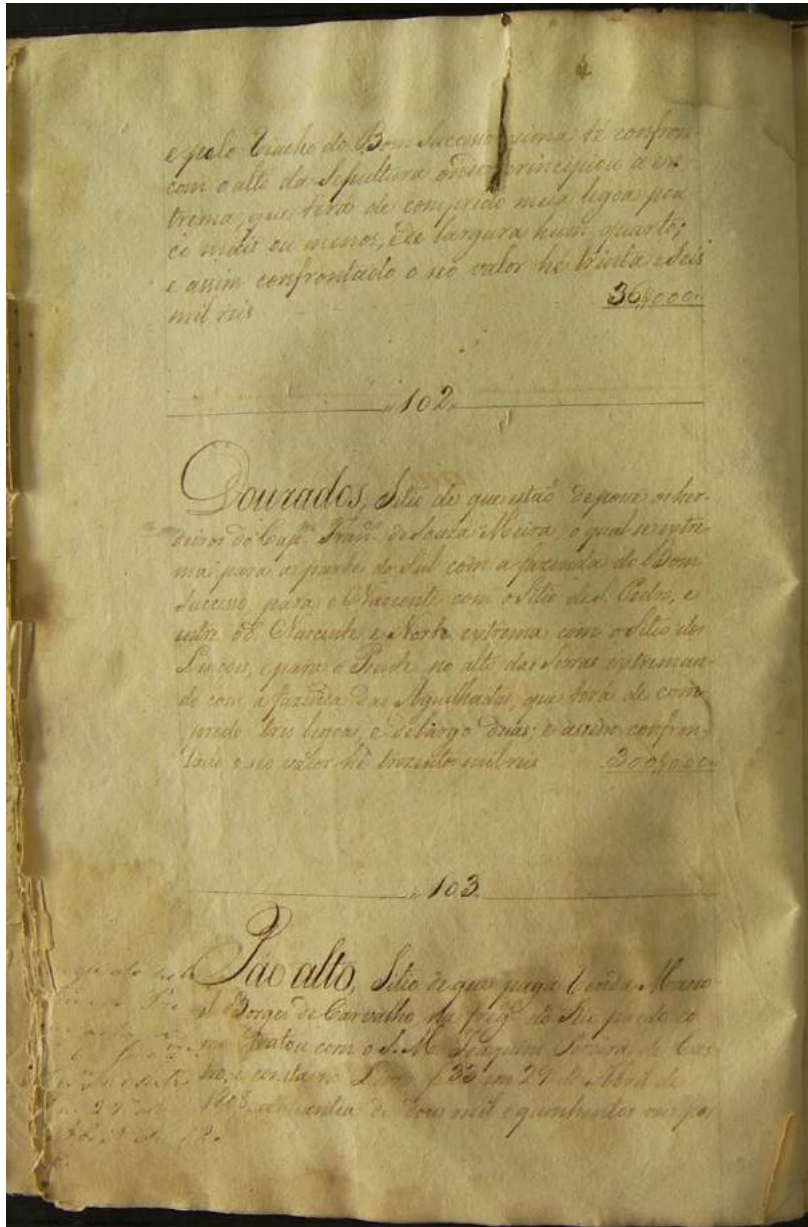 e pelo riacho do Bom Successo asima té confron-
com o alto da Sepultura onde principiou a ex-
trema, que terá de comprido meia legoa pou-
co mais ou menos, e de largura hum quarto;
e assim confrontado o seo valor hé trinta e Seis
mil reis 36$000
102
Dourados, Sitio de que estaõ de posse os her-
deiros do Cap.m de Souza Meira o qual se extre-
ma para a parte do Sul com a fazenda do Bom
Successo para o Nascente com o Sitio de S. Pedro, e
entre o Nascente e Norte extrema com o Sitio dos
e para o Poente no alto das Serras extreman-
do com a fazenda das Aguilhadas, que terá de com-
prido tres legoas, e de largo duas; e assim confron-
tado o seo valor hé trezentos mil reis 300$000
103
Páo alto, Sitio de que paga renda Mano-
el Borges de Carvalho, na freg. do Rio pardo co-
mo tratou com o S. M. Joaquim Pereira de Cas-
tro, e consta no Livro f 33 em 29 de Abril de
1808 a quantia de dous mil e quinhentos reis por